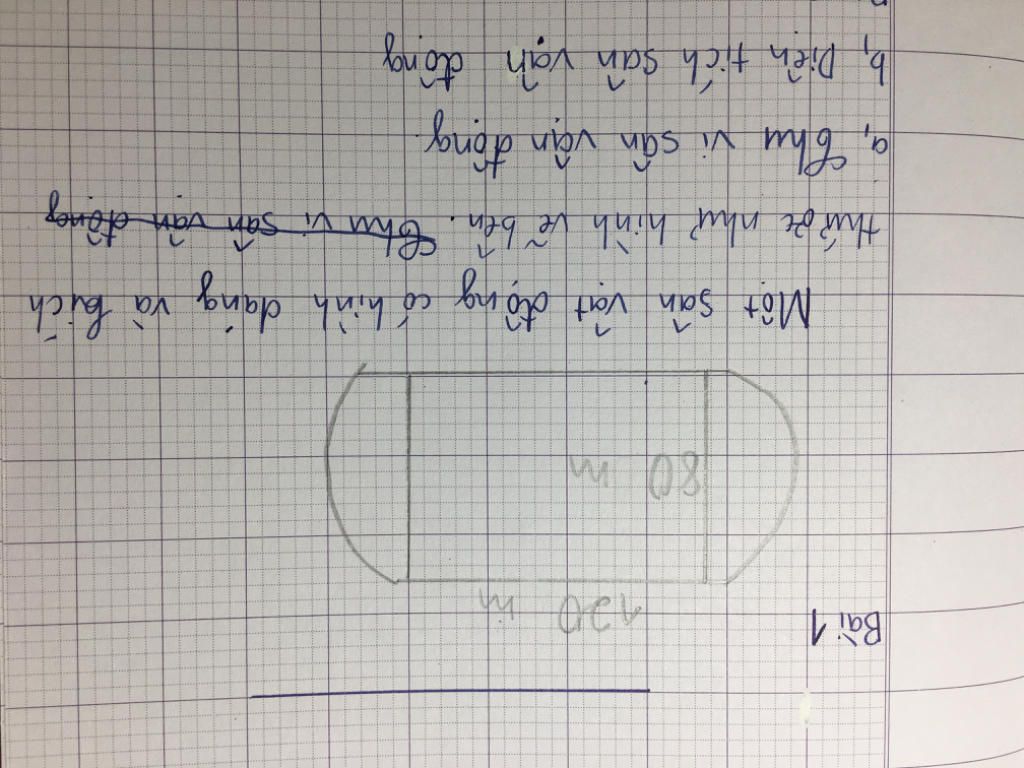 Bài 1
120 m
80 m
Một sân vật động có hình dạng và kích
thước như hình vẽ bên. Chu vi sân vận động
a, Chu vi sân vận động
b, Diện tích sân vận động